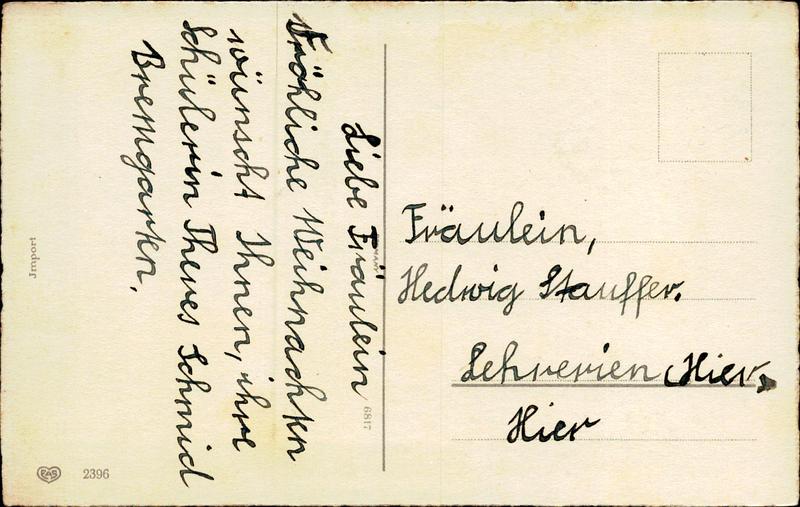 Liebe Fräulein
Fröhliche Weihnachten
wünscht Ihnen, ihre
Schülerin Theres Schmid
Bremgarten.
Fräulein,
Hedwig Stauffer.
Lehrerien (Hier,
Hier
6817
Import
EAS
2396